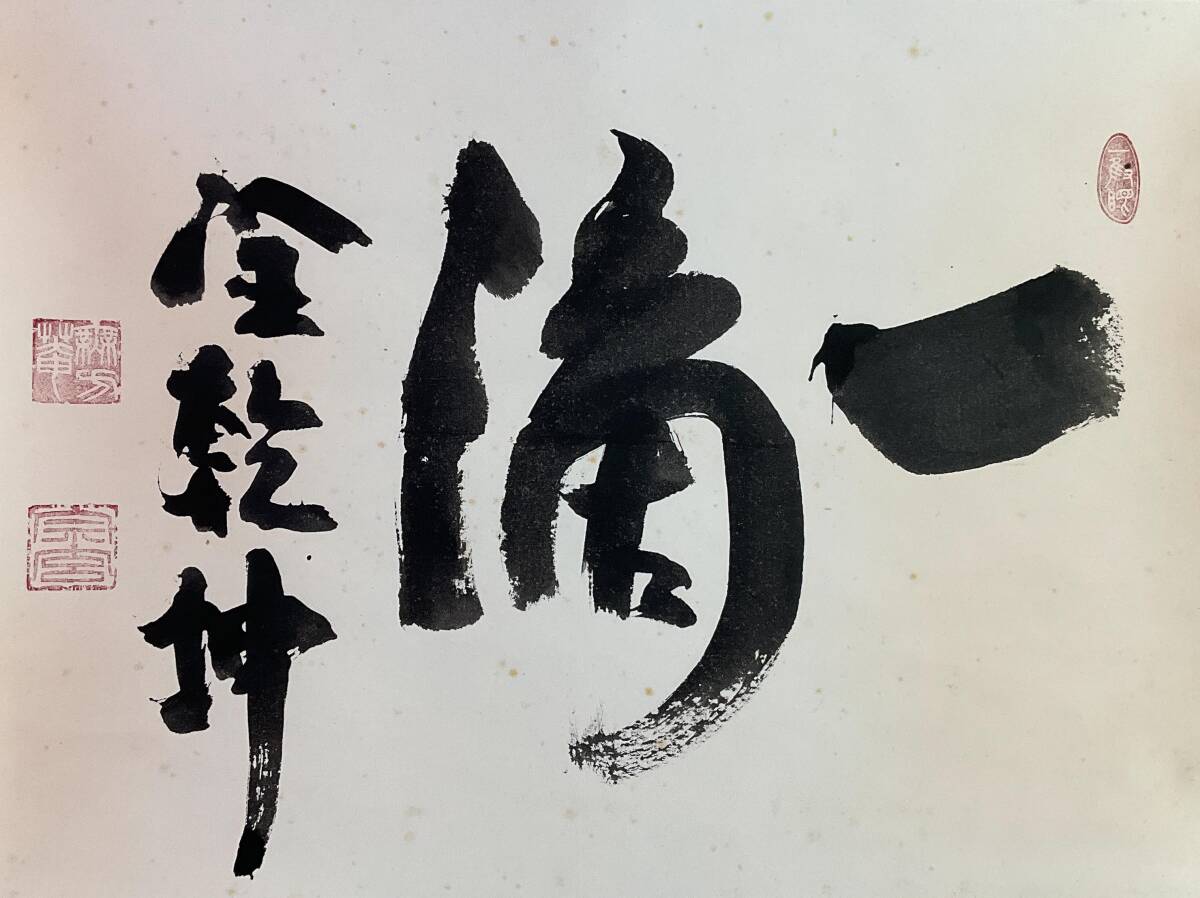 一滴
全乾坤